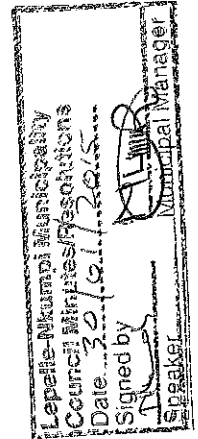 Lepelle-Nkumpi Municipality
Council Minutes/Resolutions
Date 30/01/2015
Signed by
Speaker Municipal Manager